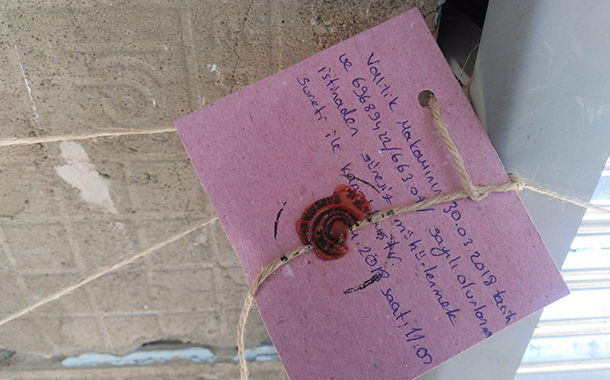 Valilik Makamının 30.03.2018 tarih
ve 69689422/663.07/ sayılı olurlarına
istinaden süresiz mühürlenmek
sureti ile
2018 saat: 11.00